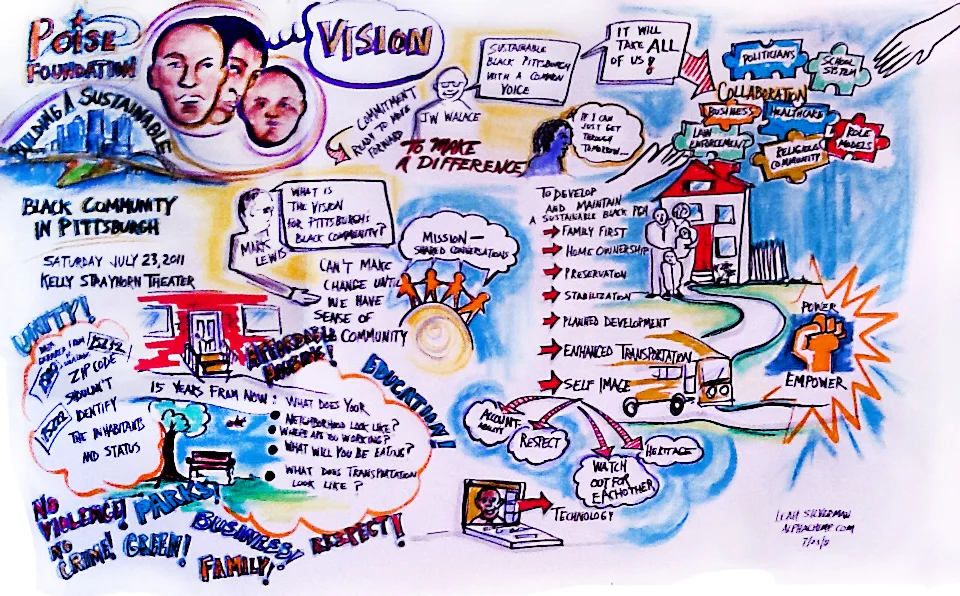 POISE
FOUNDATION
VISION
BUILDING A SUSTAINABLE
BLACK COMMUNITY
IN PITTSBURGH
SATURDAY JULY 23, 2011
KELLY STRAYHORN THEATER
COMMITMENT
READY TO MOVE
FORWARD
TO MAKE
A DIFFERENCE
JW WALACE
SUSTAINABLE
BLACK PITTSBURGH
WITH A COMMON
VOICE
IT WILL
TAKE ALL
OF US!
IF I CAN
JUST GET
THROUGH
TOMORROW...
POLITICIANS
SCHOOL
SYSTEM
COLLABORATION
BUSINESS
HEALTHCARE
LAW
ENFORCEMENT
RELIGIOUS
COMMUNITY
ROLE
MODELS
MARK
LEWIS
WHAT IS
THE VISION
FOR PITTSBURGH'S
BLACK COMMUNITY?
CAN'T MAKE
CHANGE UNTIL
WE HAVE
SENSE OF
COMMUNITY
MISSION—
SHARED CONVERSATIONS
TO DEVELOP
AND MAINTAIN
A SUSTAINABLE BLACK PGH
FAMILY FIRST
HOME OWNERSHIP
PRESERVATION
STABILIZATION
PLANNED DEVELOPMENT
ENHANCED TRANSPORTATION
SELF IMAGE
ACCOUNT-
ABILITY
RESPECT
WATCH
OUT FOR
EACHOTHER
HERITAGE
TECHNOLOGY
POWER
EMPOWER
UNITY!
ZIP CODE
SHOULDN'T
IDENTIFY
THE INHABITANTS
AND STATUS
AFFORDABLE
EDUCATION!
15 YEARS FRAM NOW:
WHAT DOES YOUR
NEIGHBORHOOD LOOK LIKE?
WHERE ARE YOU WORKING?
WHAT WILL YOU BE EATING?
WHAT DOES TRANSPORTATION
LOOK LIKE?
NO
VIOLENCE!
NO
CRIME!
PARKS!
GREEN!
BUSINESS!
FAMILY!
RESPECT!
LEAH SILVERMAN
ALPHACHIMP.COM